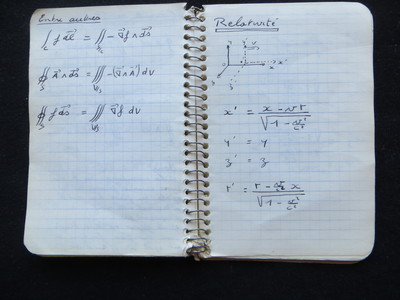 Entre autres
∫_C f d⃗l = ∬_S − ∇⃗f ∧ d⃗s
∯_S A⃗ ∧ d⃗s = ∭_V(S) −(∇⃗ ∧ A⃗) dV
∯_S f d⃗s = ∭_V(S) ∇⃗f dV
Relativité
x' = (x − vt) / √(1 − v²/c²)
y' = y
z' = z
t' = (t − v/c² x) / √(1 − v²/c²)